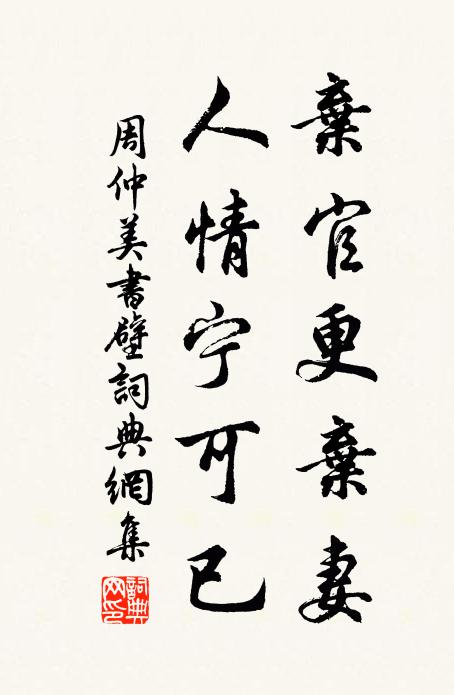 棄官更棄妻
人情宁可已
周仲美書壁詞典網集
詞典網印